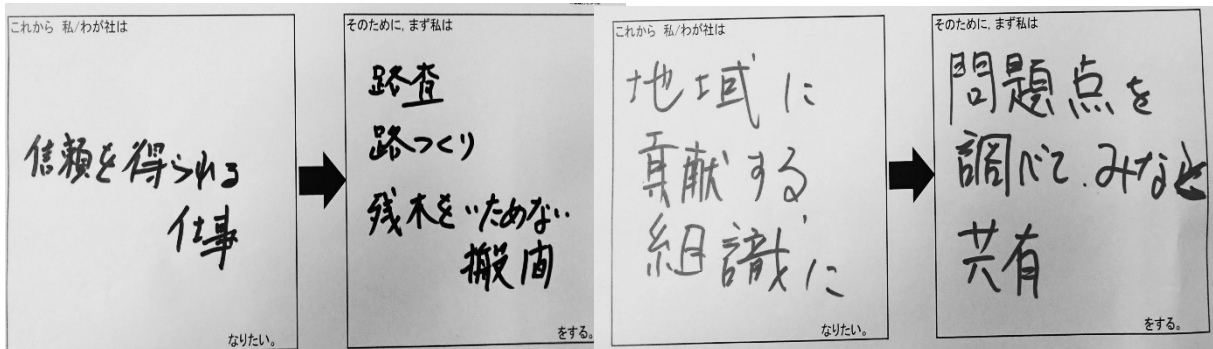 これから 私/わが社は
信頼を得られる
仕事
なりたい。
そのために, まず私は
路査
路つくり
残木をいためない
をする。
これから 私/わが社は
地域に
貢献する
組識に
なりたい。
そのために, まず私は
問題点を
調べて、みなと
共有
をする。